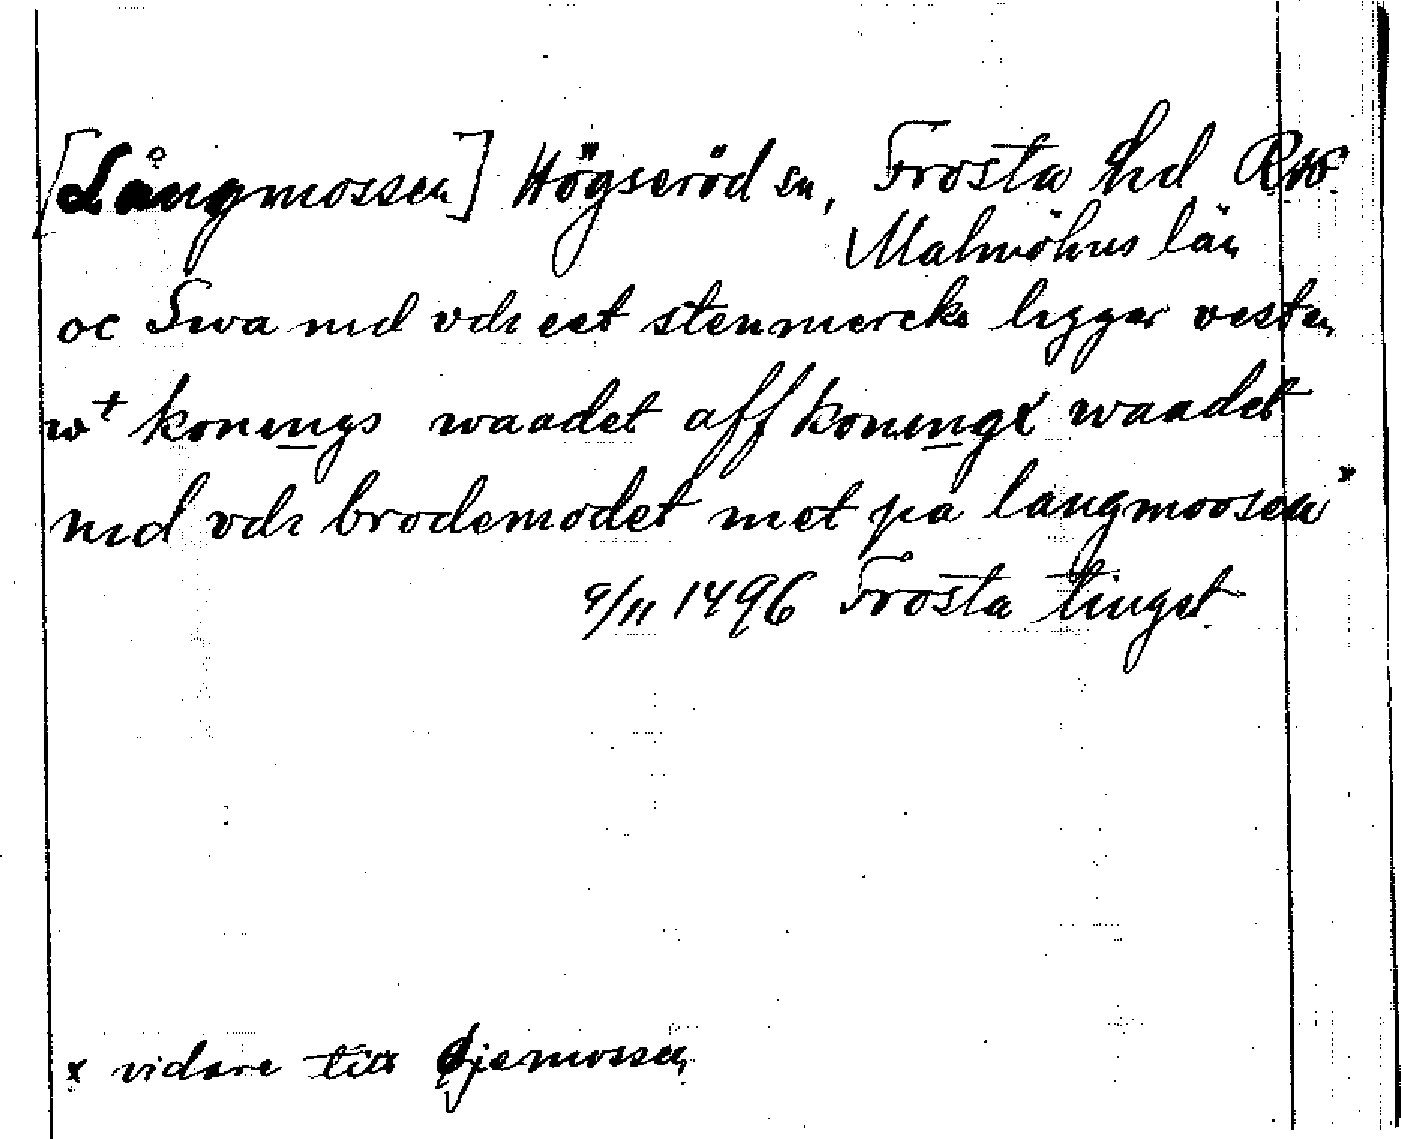 [Långmossen] Högseröd sn, Frosta hd
Malmöhus län
oc Swa nid vdi eet stenmercke ligger vesten
wt konings waadet aff konings waadet
nid vdi brodemodet met pa langmoosen x
9/11 1496 Frosta tinget.
x vidare till Øjemossen